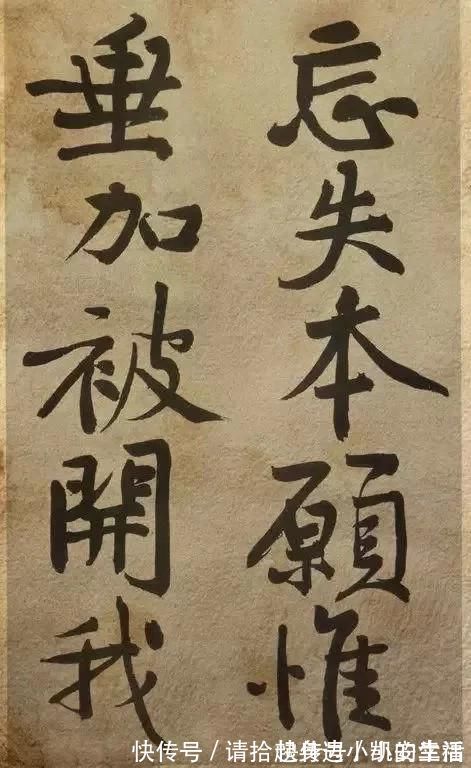 忘失本願惟
垂加被開我
快传号／请拾起身边小凯的幸福